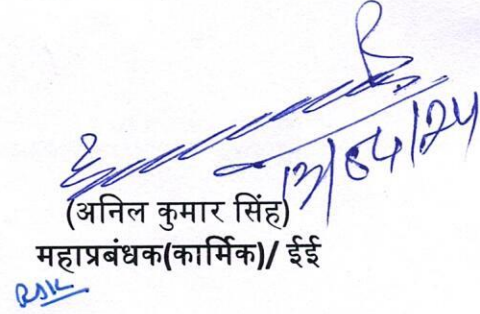 13/04/24
(अनिल कुमार सिंह)
महाप्रबंधक(कार्मिक)/ ईई